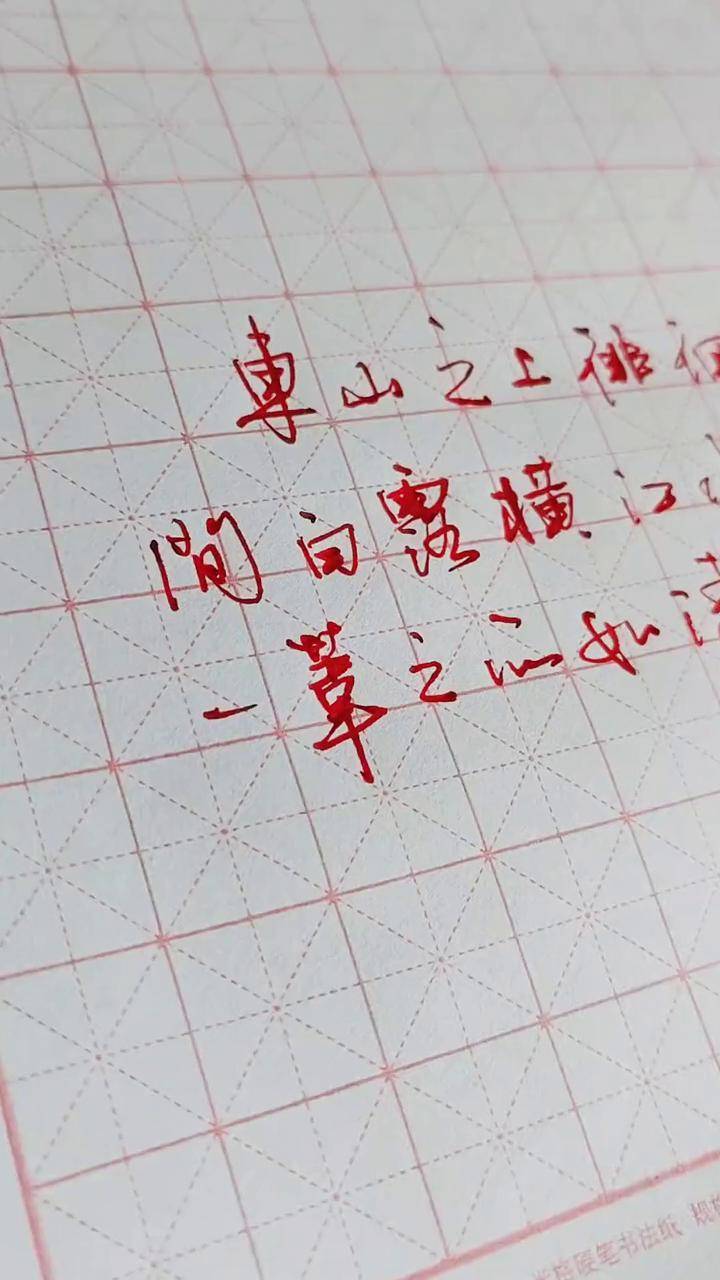 東山之上徘徊
間白露橫江
一葦之所如
硬笔书法纸 规格